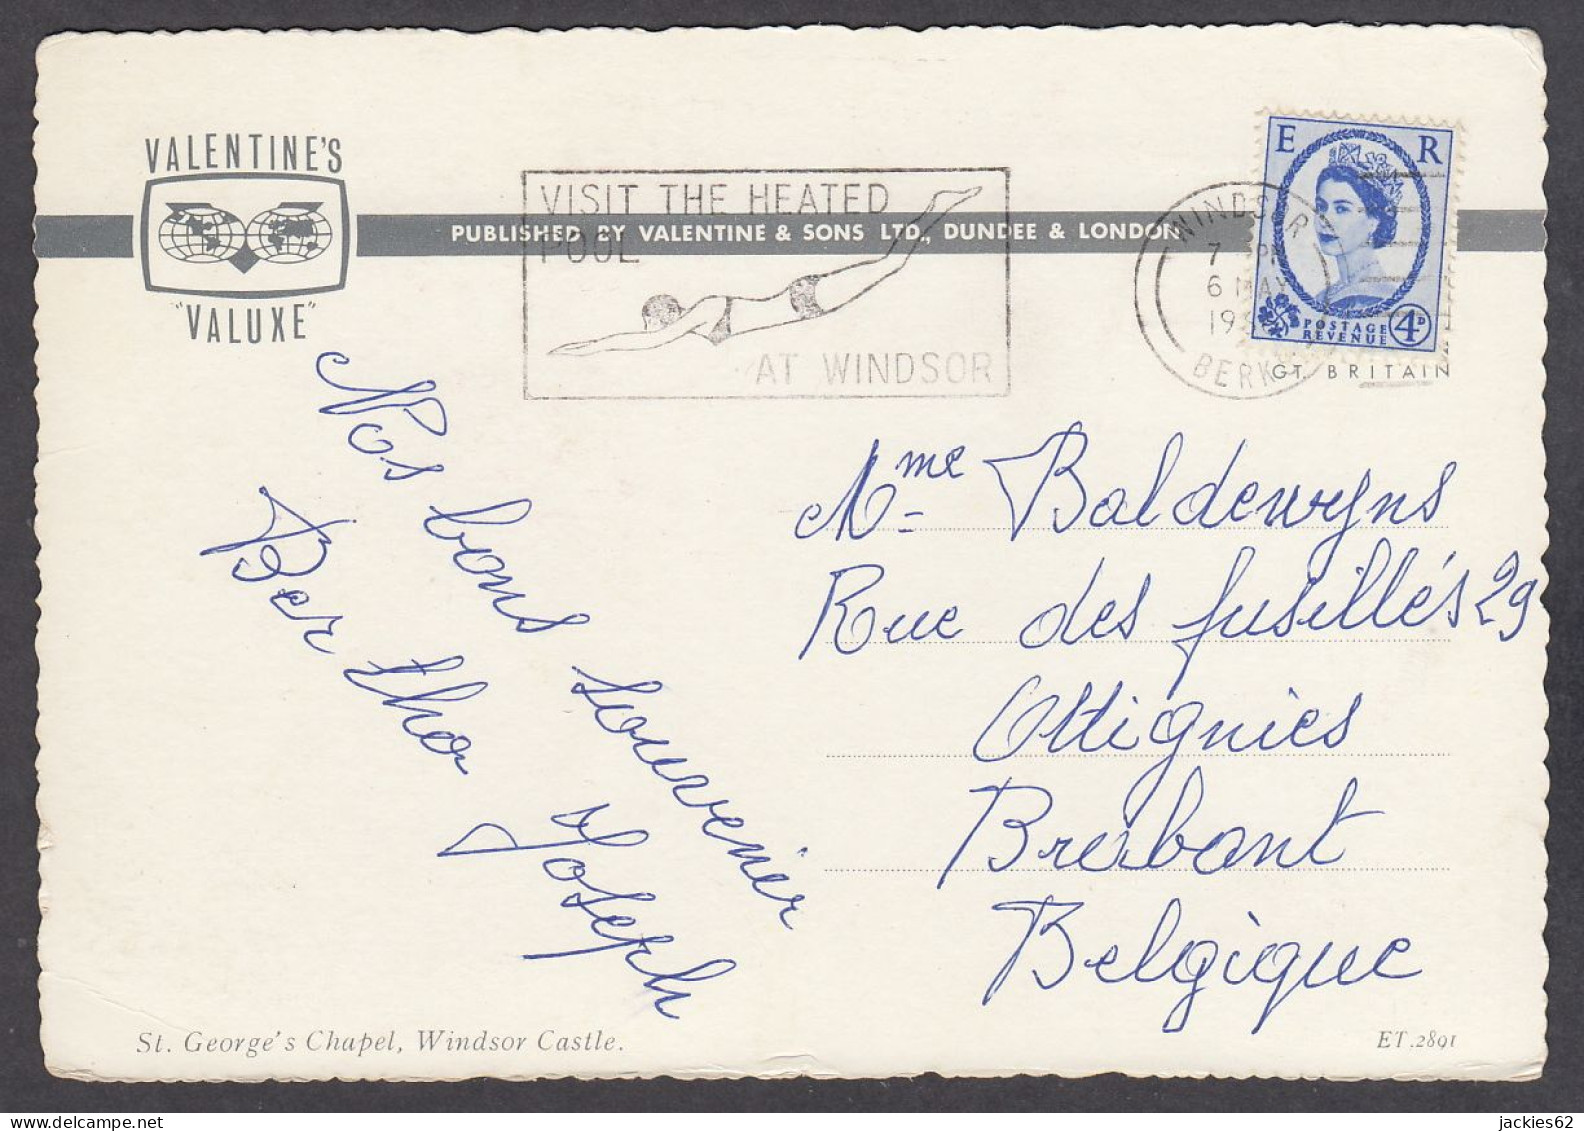 VALENTINE'S
"VALUXE"
PUBLISHED BY VALENTINE & SONS LTD., DUNDEE & LONDON
VISIT THE HEATED
POOL
AT WINDSOR
WINDSOR
7 PM
6 MAY
19
BERKS
E R
POSTAGE
REVENUE 4D
GT. BRITAIN
Nos bons souvenir
Bertha Joseph
Mme Baldewyns
Rue des fusillés 29
Ottignies
Brabant
Belgique
St. George's Chapel, Windsor Castle.
ET.2891
jackies62